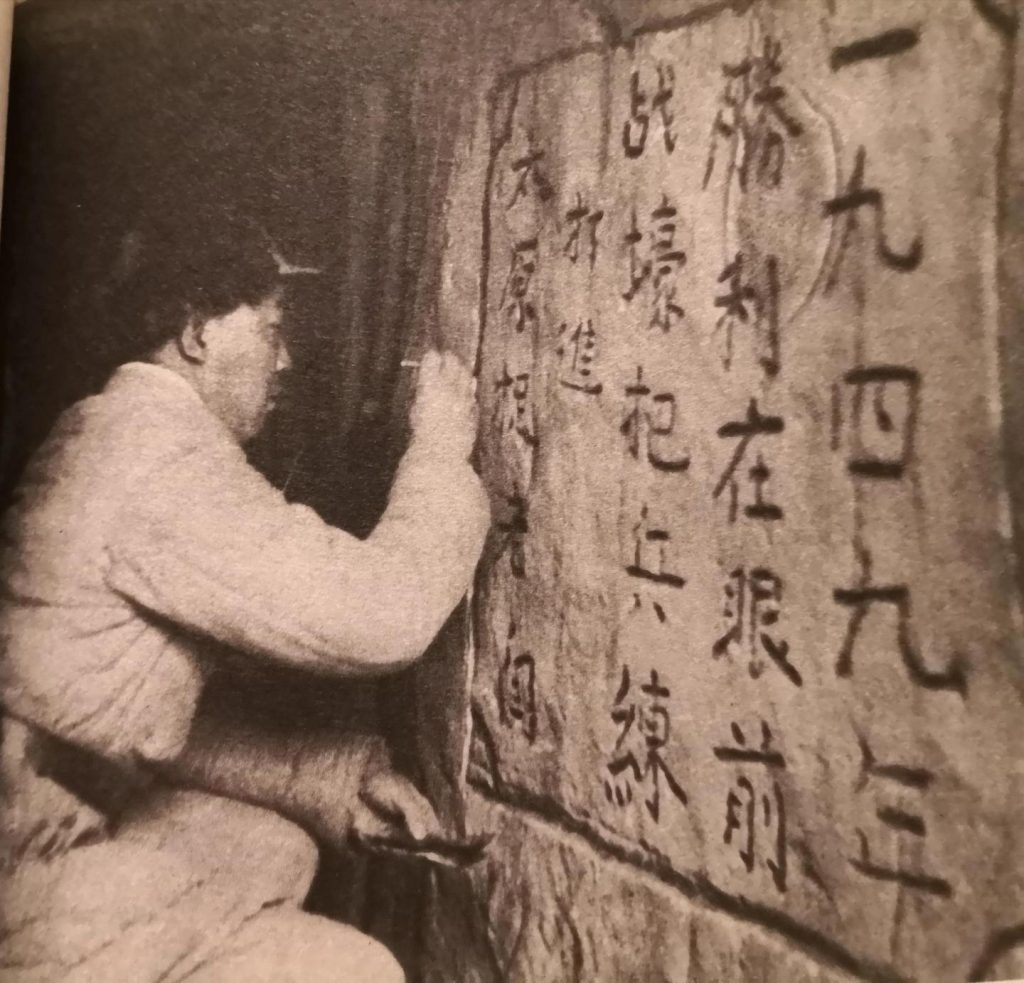 一九四九年
勝利在眼前
战壕把兵練
打進
太原捉老